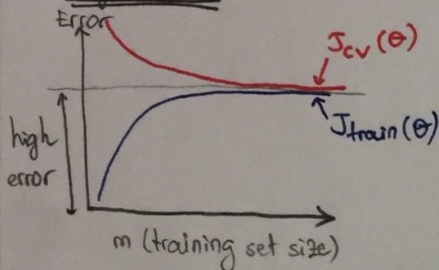 Error
J_cv(θ)
J_train(θ)
high
error
m (training set size)